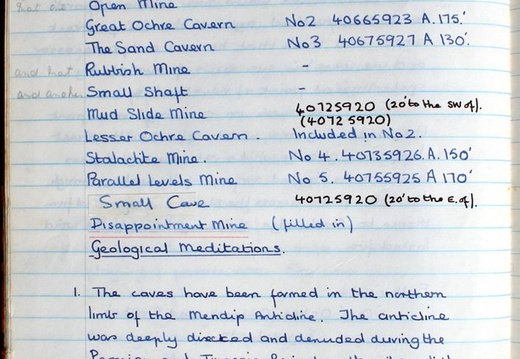 Open Mine
Great Ochre Cavern No2 40665923 A.175.'
The Sand Cavern No3 40675927 A 130.'
Rubbish Mine -
Small Shaft -
Mud Slide Mine 40725920 (20' to the SW of).
(40725920)
Lesser Ochre Cavern. Included in No2.
Stalactite Mine. No 4. 40735926.A.150'
Parallel Levels Mine No 5. 40755925 A 170'
Small Cave 40725920 (20' to the E. of).
Disappointment Mine (filled in)
Geological Meditations.
1. The caves have been formed in the northern
limb of the Mendip Anticline. The anticline
was deeply disected and denuded during the